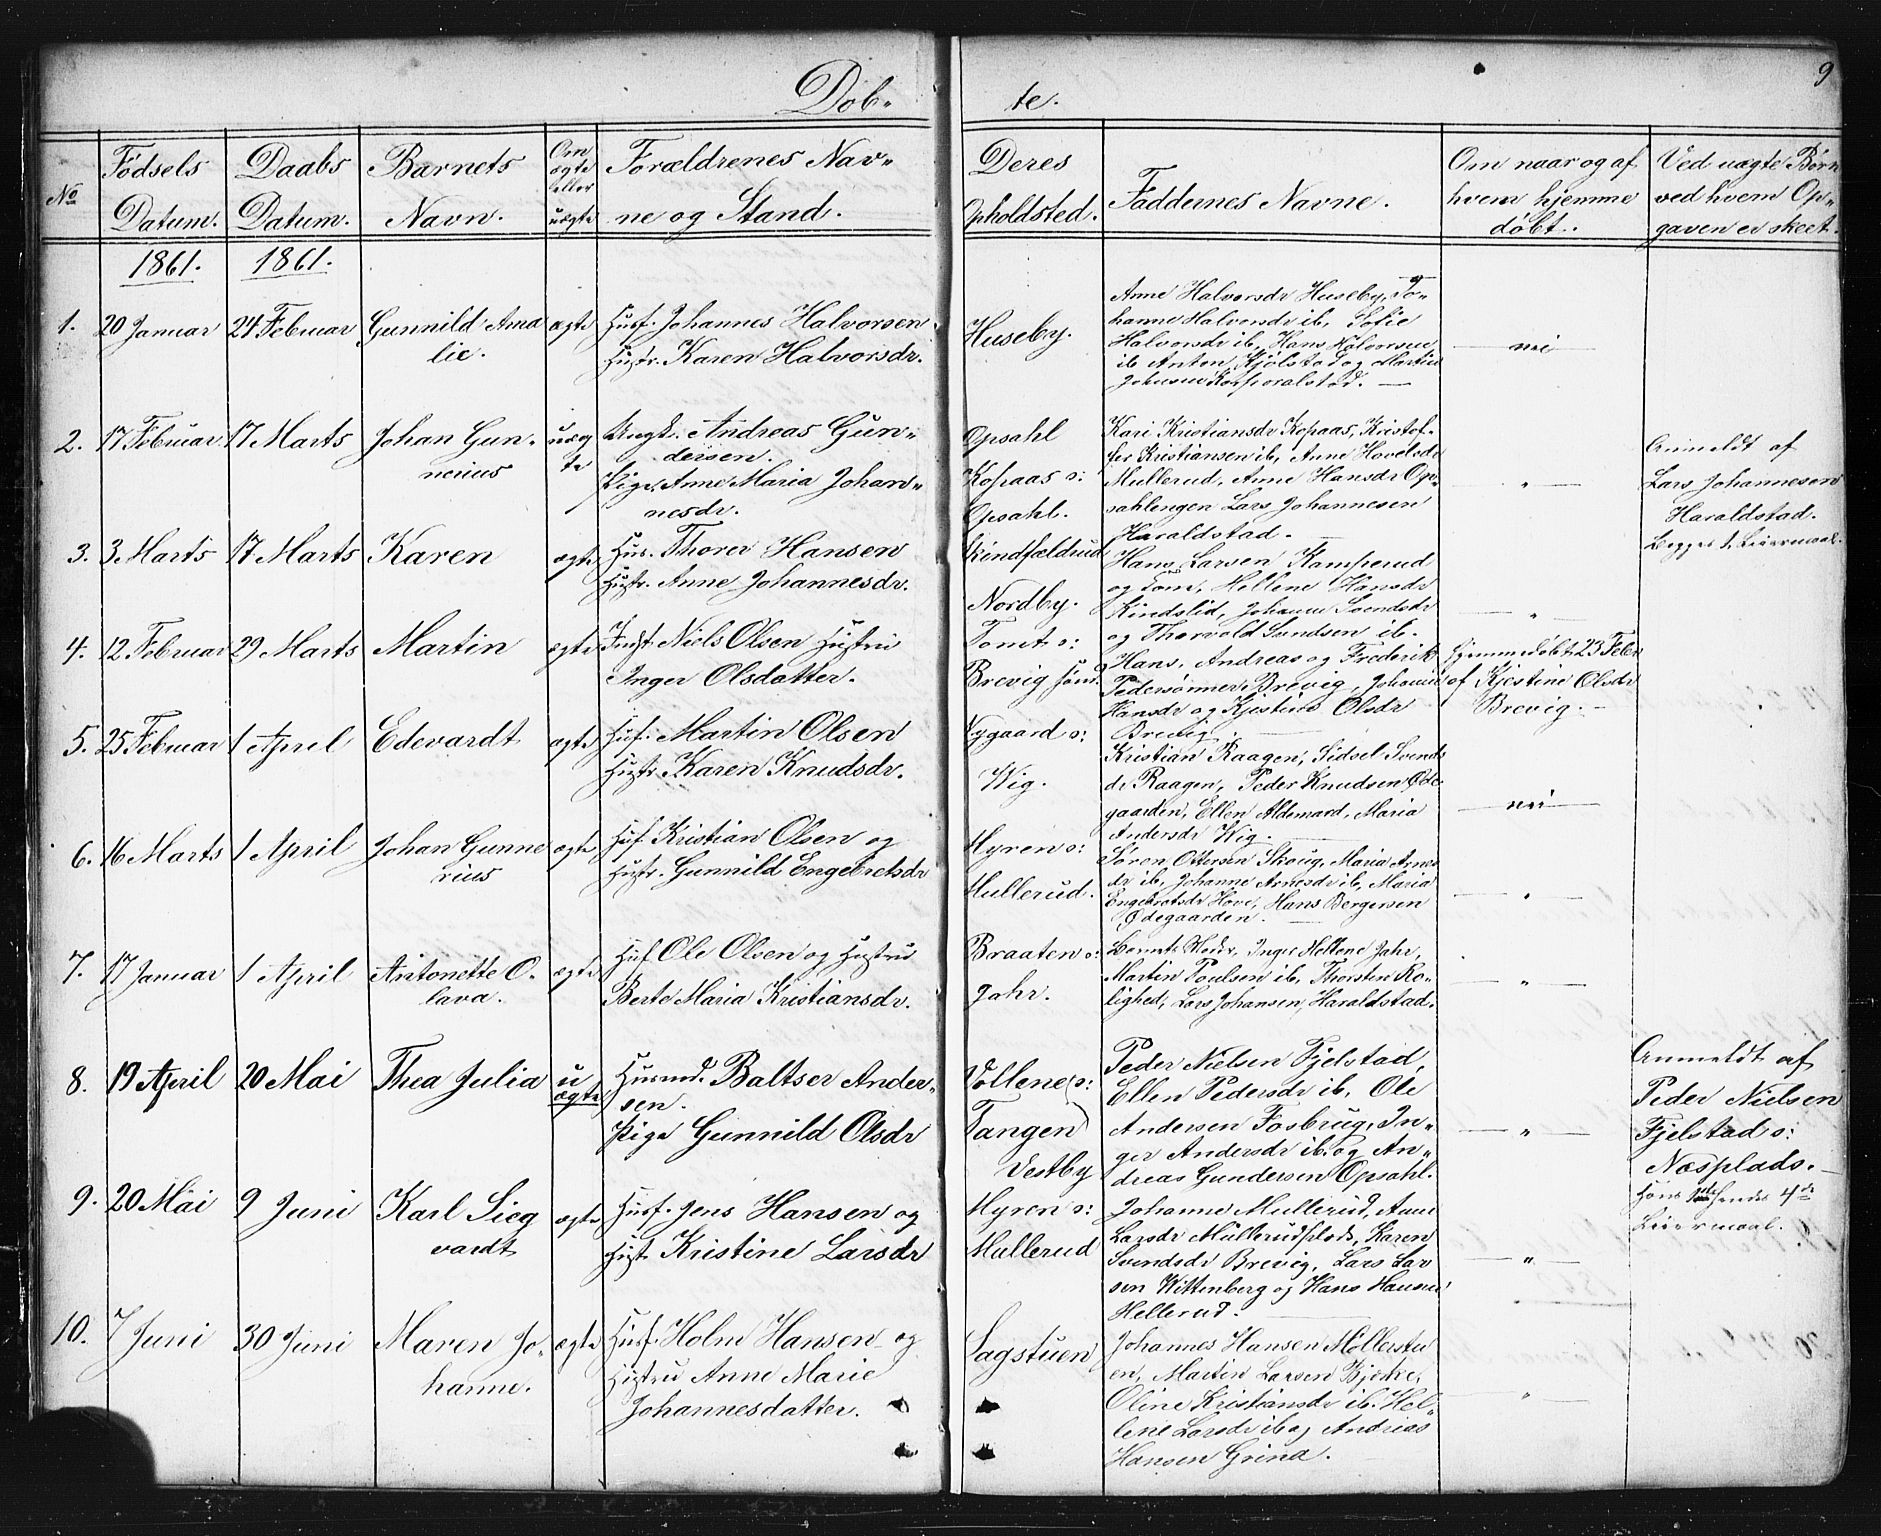 Døb-
te.
9
No
Fødsels
Datum.
Daabs
Datum.
Barnets
Navn.
Om
ægte
eller
uægte
Forældrenes Nav-
ne og Stand.
Deres
Opholdsted.
Faddernes Navne.
Om naar og af
hvem hjemme
døbt.
Ved uægte Børn
ved hvem Op-
gaven er skeet.
1861.
1861.
1.
20 Januar
24 Februar
Gunnild Ama
lie.
ægte
Husf. Johannes Halvorsen
Hustr. Karen Halvorsdr.
Huseby.
Anne Halvorsdr Huseby, Jo-
hanne Halvorsdr ib, Sofie
Halvorsdr ib, Hans Halvorsen
ib Anton Kjølstad og Martin
Johnsen Korporalstad. —
— nei —
2.
17 Februar
17 Marts
Johan Gun-
nerius
uæg
te
Ungk. Andreas Gun-
dersen.
Pige, Anne Maria Johan-
nesdr.
Opsahl
Kopaas o:
Opsahl.
Kari Kristiansdr Kopaas, Kristof-
fer Kristiansen ib, Anne Hovelsdr
Mullerud, Anne Hansdr Op-
sahlengen Lars Johannesen
Haraldstad. —
— „ —
Anmeldt af
Lars Johannesen
Haraldstad.
Begges 1. Leiermaal.
3.
3 Marts
17 Marts
Karen
ægte
Hus. Thorer Hansen
Hustr. Anne Johannesdr.
Kindfældrud
Nordby.
Hans Larsen Kamperud
og Tom, Hellene Hansdr
Kindslid, Johanne Svendsdr
og Thorvold Sundsen ib.
— „ —
4.
12 Februar
29 Marts
Martin
ægte
Indst. Niels Olsen Hustru
Inger Olsdatter.
Tomt o:
Brevig søn.
Hans, Andreas og Frederik
Pedersønner Brevig, Johanne
Hansdr og Kjestine Olsdr
Brevig. —
Hjemmedøbt 23 Febr
af Kjestine Olsdr
Brevig. —
5.
25 Februar
1 April
Edevardt
ægte
Huf. Martin Olsen
Hustr. Karen Knudsdr.
Nygaard o:
Wig.
Kristian Raagen, Sidsel Svends
dr Raagen, Peder Knudsen Øde
gaarden, Ellen Aldemard, Maria
Andersdr Wig. —
— nei —
6.
16 Marts
1 April
Johan Gunne
rius
ægte
Huf Kristian Olsen og
Hustr. Gunnild Engebretsdr
Myren o:
Mullerud.
Søren Ottersen Skoug, Maria Arnes
dr ib, Johanne Arnesdr ib, Maria
Engebretsdr Hove, Hans Bergersen
Ødegaarden. —
— „ —
7.
17 Januar
1 April
Antonette O-
lava.
ægte
Huf Ole Olsen og Hustru
Berte Maria Kristiansdr.
Braaten o:
Jahr.
Barnets Moder, Inger Hellene Jahr,
Martin Poulsen ib, Thorsten Ro-
lighed, Lars Johansen, Haraldstad.
— „ —
8.
19 April
20 Mai
Thea Julia
u
ægte
Husmd. Baltser Ander-
sen.
Pige Gunnild Olsdr
Vollene o:
Tangen
Vestby
Peder Nielsen Fjelstad,
Ellen Pedersdr ib, Ole
Andersen Fosbrug, In-
ger Andersdr ib. og An-
dreas Gundersen Opsahl.
— „ —
Anmeldt af
Peder Nielsen
Fjelstad o:
Næsplads. —
Hans 1ste Hendes 4de
Leiermaal.
9.
20 Mai
9 Juni
Karl Sieg
vardt
ægte
Husf. Jens Hansen og
Hust Kristine Larsdr
Myren o:
Mullerud
Johanne Mullerud, Anne
Larsdr Mullerudplads, Karen
Svendsdr Brevig, Lars Lar
sen Wittenberg og Hans Hansen
Hellerud. —
— „ —
10.
7 Juni
30 Juni
Maren Jo-
hanne.
ægte
Husf. Holm Hansen og
Hustru Anne Marie
Johannesdatter.
Sagstuen
Johannes Hansen Møllerstu
en, Martin Larsen Bjerke,
Oline Kristiansdr ib. Hel-
lene Larsdr ib og Andreas
Hansen Grina.
— „ —